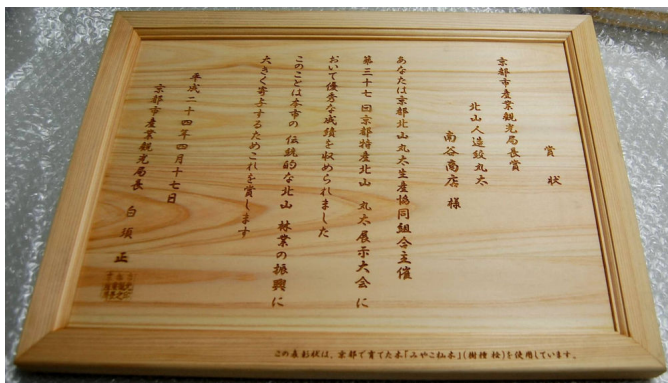 賞状
京都市産業観光局長賞
北山人造絞丸太
南谷商店 様
あなたは京都北山丸太生産協同組合主催
第三十七回京都特産北山 丸太展示大会に
おいて優秀な成績を収められました
このことは本市の 伝統的な北山 林業の振興に
大きく寄与するためこれを賞します
平成二十四年四月十七日
京都市産業観光局長 白須 正
この表彰状は、京都で育てた木「みやこ杣木」(樹種 桧)を使用しています。